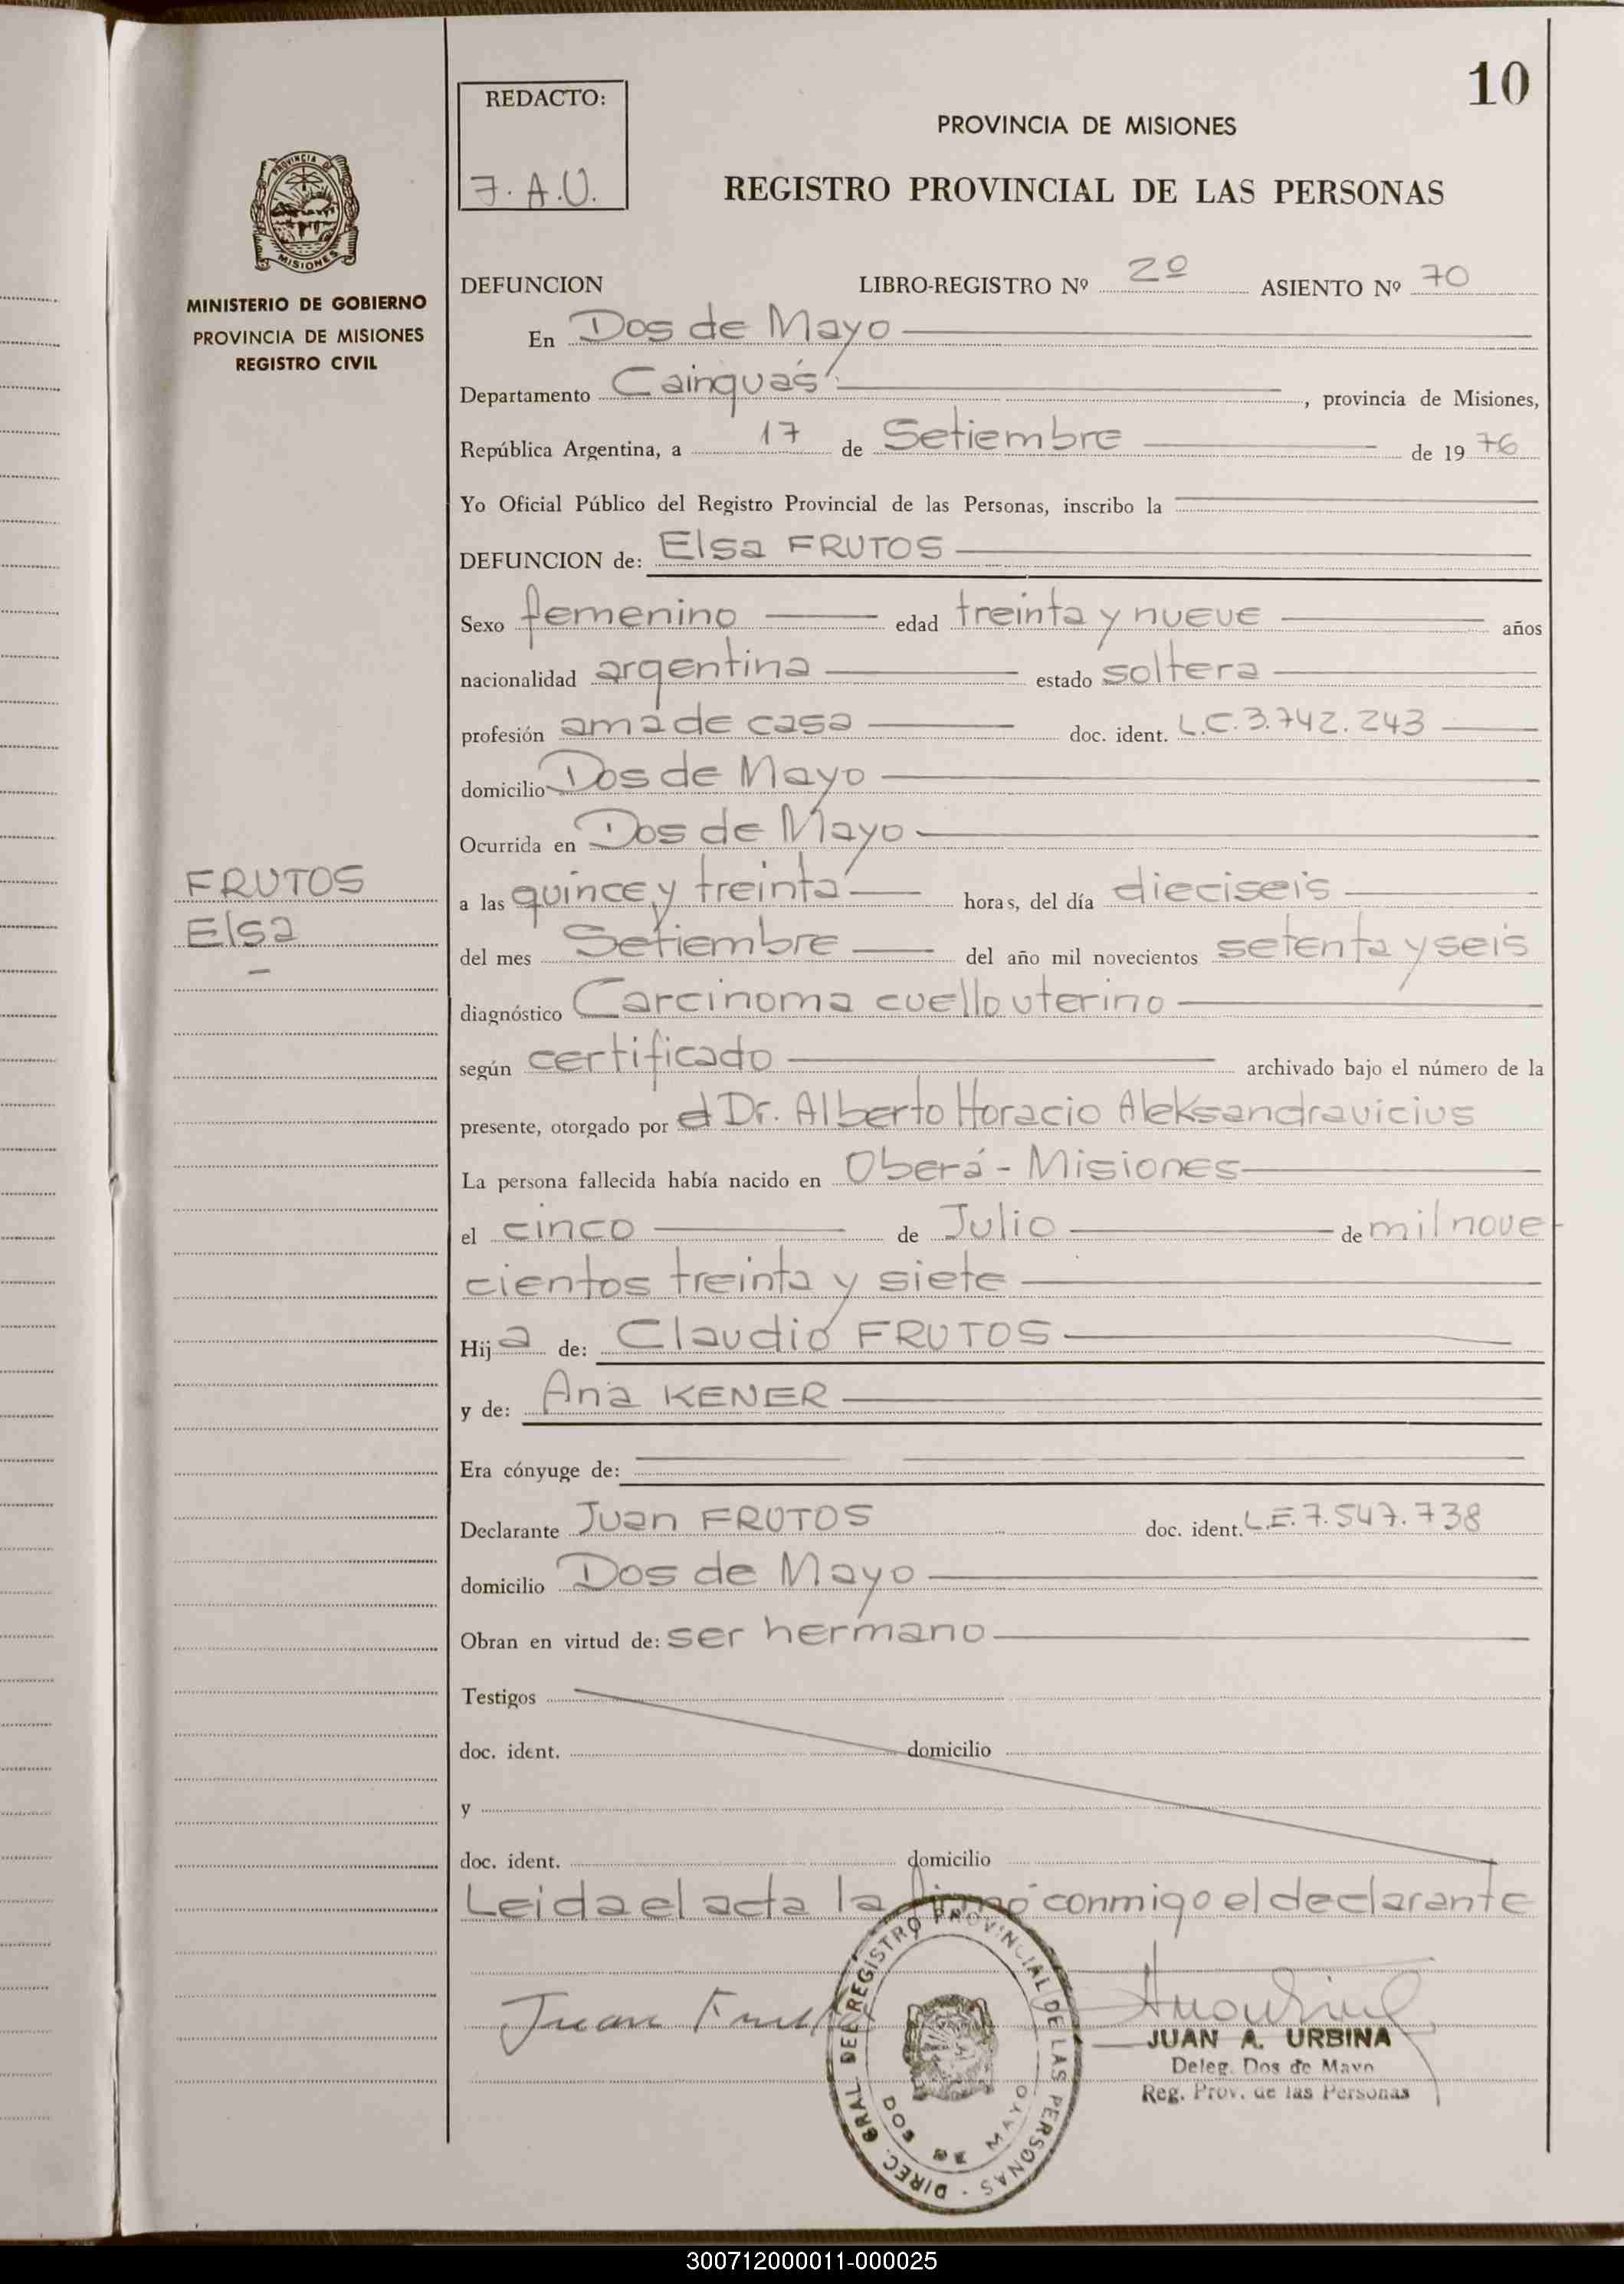 10
REDACTO:
J. A. U.
PROVINCIA DE MISIONES
REGISTRO PROVINCIAL DE LAS PERSONAS
PROVINCIA DE
MISIONES
MINISTERIO DE GOBIERNO
PROVINCIA DE MISIONES
REGISTRO CIVIL
DEFUNCION LIBRO-REGISTRO Nº 2º ASIENTO Nº 70
En Dos de Mayo
Departamento Cainguás, provincia de Misiones,
República Argentina, a 17 de Setiembre de 1976
Yo Oficial Público del Registro Provincial de las Personas, inscribo la
DEFUNCION de: Elsa FRUTOS
Sexo femenino edad treinta y nueve años
nacionalidad argentina estado soltera
profesión ama de casa doc. ident. L.C. 3.742.243
domicilio Dos de Mayo
Ocurrida en Dos de Mayo
FRUTOS
Elsa
a las quince y treinta horas, del día dieciseis
del mes Setiembre del año mil novecientos setenta y seis
diagnóstico Carcinoma cuello uterino
según certificado archivado bajo el número de la
presente, otorgado por el Dr. Alberto Horacio Aleksandravicius
La persona fallecida había nacido en Oberá - Misiones
el cinco de Julio de mil nove
cientos treinta y siete
Hija de: Claudio FRUTOS
y de: Ana KENER
Era cónyuge de:
Declarante Juan FRUTOS doc. ident. L.E. 7.547.738
domicilio Dos de Mayo
Obran en virtud de: ser hermano
Testigos
doc. ident. domicilio
y
doc. ident. domicilio
Leida el acta la firmó conmigo el declarante
Juan
DIREC. GRAL DEL REGISTRO PROVINCIAL DE LAS PERSONAS -
DOS DE MAYO
JUAN A. URBINA
Deleg. Dos de Mayo
Reg. Prov. de las Personas
300712000011-000025